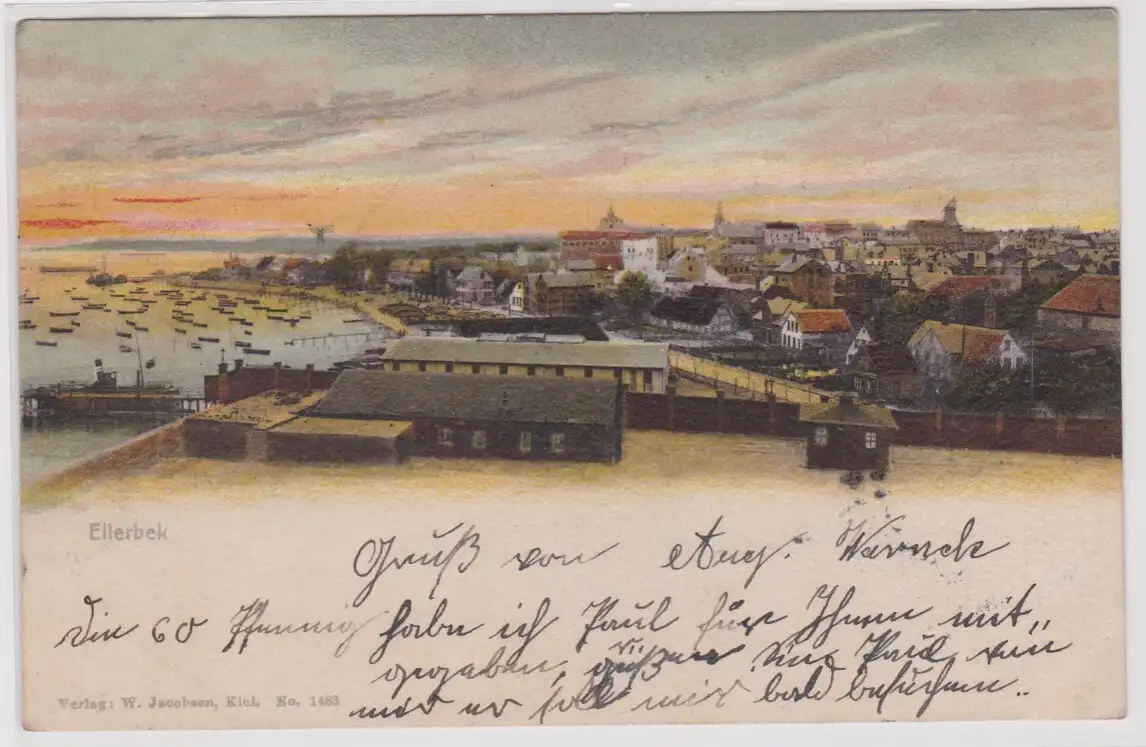 Ellerbek
Gruß von Aug. Warnek
Die 60 Pfennig habe ich Paul für Ihnen mit„
gegeben, grüßen Sie Paul von
mir er soll mir bald besuchen..
Verlag: W. Jacobsen, Kiel. No. 1483